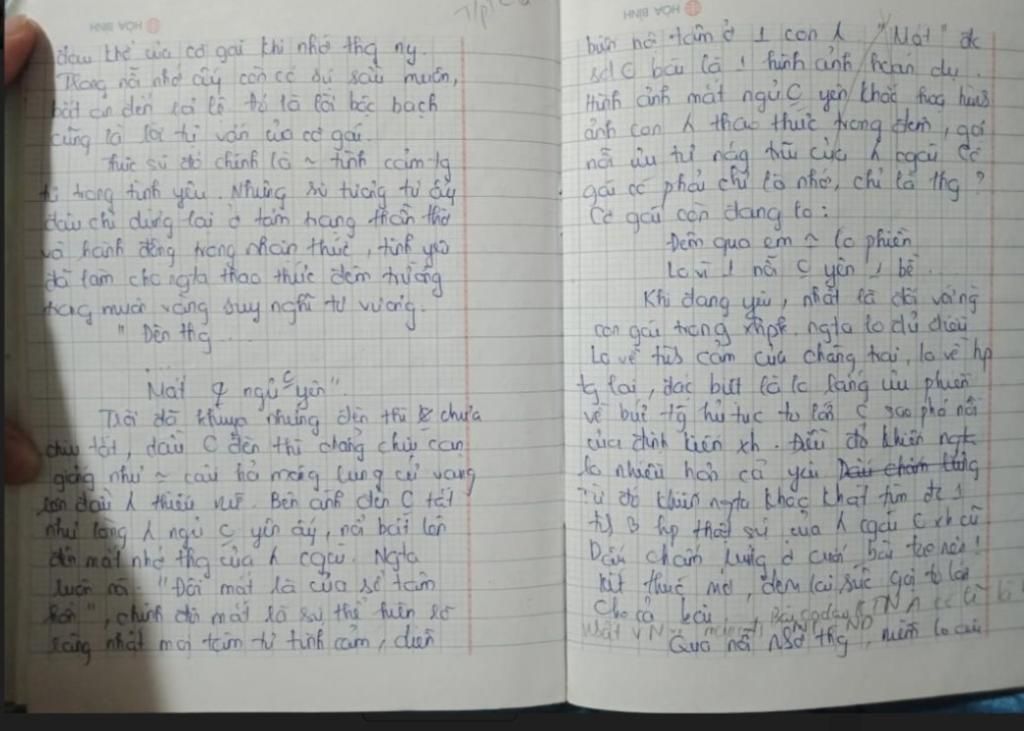 HOA BINH
đau khổ của cô gái khi nhớ thg ny.
Trong nỗi nhớ ấy còn có sự sầu muộn,
bất an đến lạ lẽ đó là lời bộc bạch
cũng là lời tự vấn của cô gái.
Thực sự đó chính là ~ tình cảm tg
tư trong tình yêu. Nhưng sự tương tư ấy
đâu chỉ dừng lại ở tâm trạng thẫn thờ
và hành động trong nhận thức, tình yêu
đã làm cho ngta thao thức đêm trường
trong muôn vàng suy nghĩ tư vương.
" Đèn thg ...
...
Mắt ngủ c yên"
Trời đã khuya nhưng đèn thì chưa
chịu tắt, dầu C đèn thì chẳng chịu cạn
giống như ~ câu hỏi mông lung cứ vang
lên đầu thiếu nữ. Bên ánh đèn C tắt
như lòng ngủ C yên ấy, nổi bật lên
đôi mắt nhớ thg của cgai. Ngta
luôn nói "Đôi mắt là cửa sổ tâm
hồn", chính đôi mắt là sự thể hiện rõ
ràng nhất mọi tâm tư tình cảm, diễn
HOA BINH
biến nội tâm ở 1 con "Mắt" đc
sd C bài là 1 hình ảnh hoán dụ.
Hình ảnh mắt ngủ C yên khắc hoạ hình
ảnh con thao thức trong đêm, gợi
nỗi ưu tư nặng trĩu của cgái Cô
gái có phải chỉ là nhớ, chỉ là thg ?
Cô gái còn đang lo :
Đêm qua em ~ lo phiền
Lo vì 1 nỗi C yên 1 bề.
Khi đang yêu, nhất là đối với ng
con gái trong xhpk ngta lo đủ điều
Lo về tình cảm của chàng trai, lo về hp
tg lai, đặc biệt là lo lắng ưu phiền
về bức tg hủ tục to lớn C sao phá nổi
của định kiến xh. Điều đó khiến ngta
lo nhiều hơn cả yêu
Từ đó khiến ngta khác khát tìm đc 1
hp thật sự của cgái C xh cũ
Dấu chấm lửng ở cuối bài tạo nên
kết thúc mở, đem lại sức gợi to lớn
Cho cả bài
Qua nỗi nhớ thg, niềm lo âu